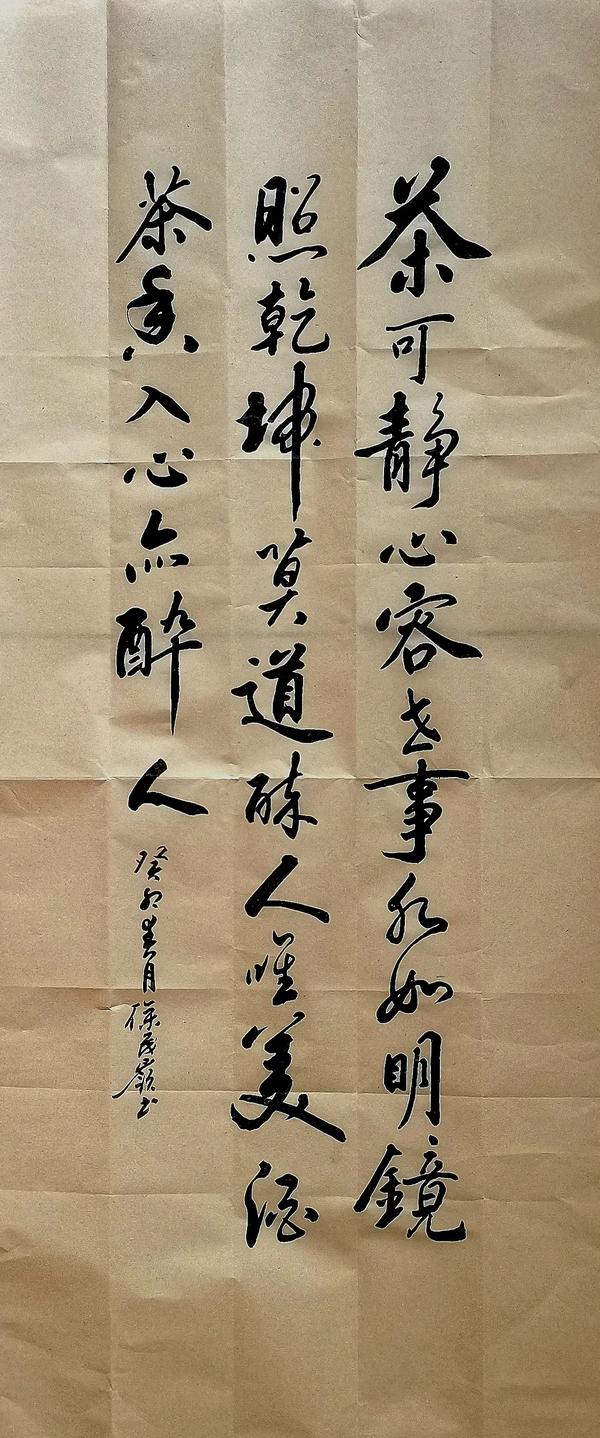 茶可静心容世事水如明鏡
照乾坤莫道醉人唯美酒
茶香入心亦醉人
癸卯春月民嶺书